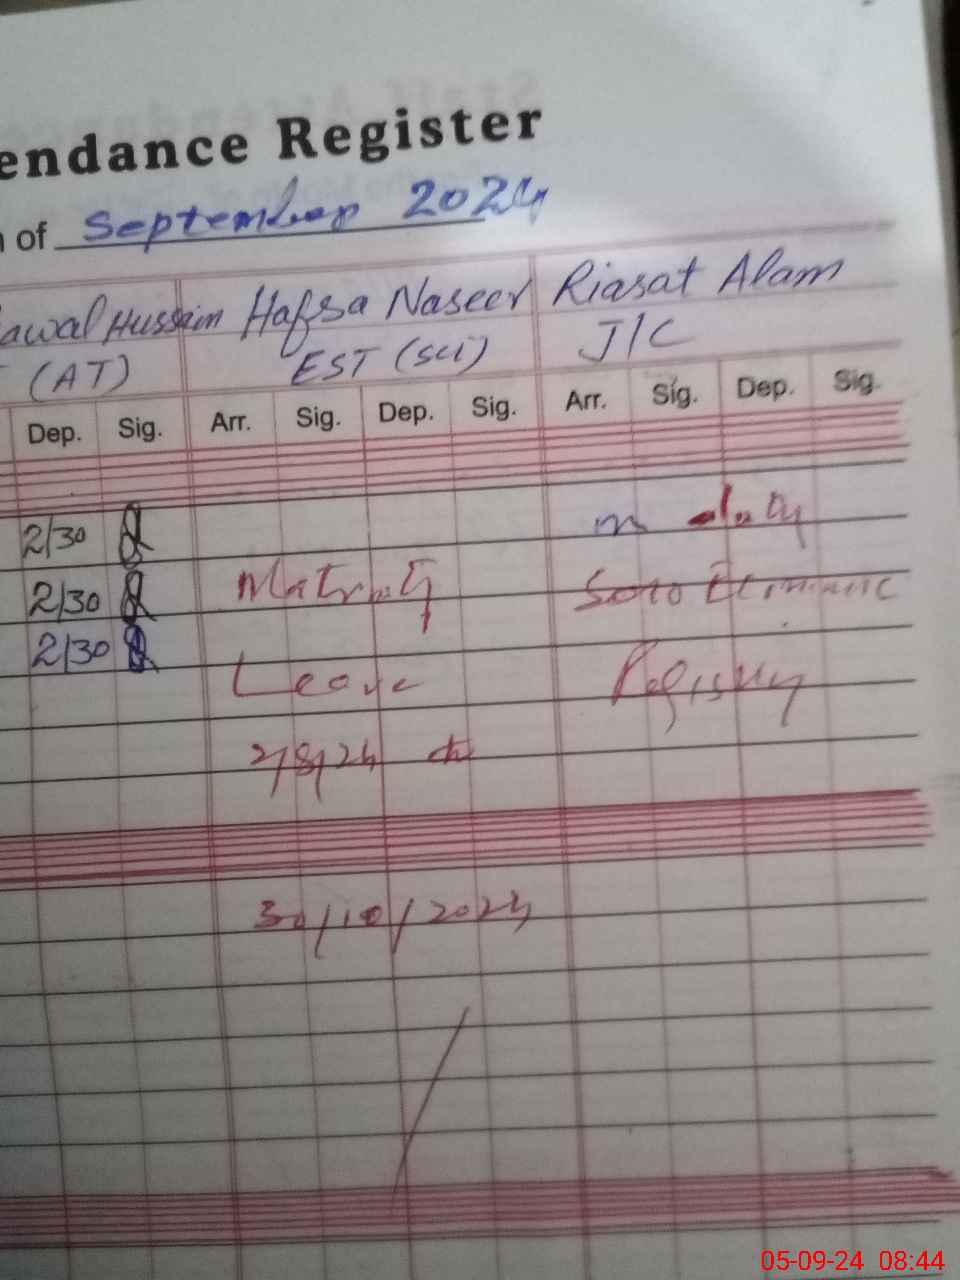 endance Register
of September 2024
awal Hussain Hafsa Naseer Riasat Alam
(AT) EST (sci) J/C
Dep. Sig. Arr. Sig. Dep. Sig. Arr. Sig. Dep. Sig.
2/30
2/30
2/30
on duty
Leave
Registry
2/8/24
30/10/2024
05-09-24 08:44